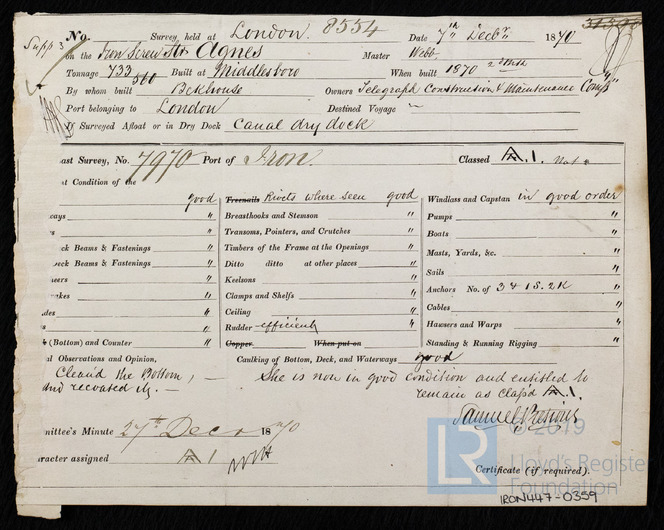 No. Survey, held at London. 8554 Date 7th Decbr 1870
Supp 3
on the Iron Screw Str Agnes Master Webb
Tonnage 733 560 Built at Middlesboro When built 1870
By whom built Bckhouse Owners Telegraph Construction & Maintenance Compy
Port belonging to London Destined Voyage —
If Surveyed Afloat or in Dry Dock Canal dry dock
ast Survey, No. 7970 Port of Iron. Classed A.1.
t Condition of the
good Treenails Rivets where seen good Windlass and Capstan in good order
ways " Breasthooks and Stemson " Pumps "
s " Transoms, Pointers, and Crutches " Boats "
ck Beams & Fastenings " Timbers of the Frame at the Openings " Masts, Yards, &c. "
eck Beams & Fastenings " Ditto ditto at other places " Sails "
eers " Keelsons " Anchors No. of 3 & 1S. 2K "
akes " Clamps and Shelfs " Cables "
des " Ceiling " Hawsers and Warps "
s " Rudder efficient " Standing & Running Rigging "
(Bottom) and Counter " Copper When put on
al Observations and Opinion, Caulking of Bottom, Deck, and Waterways good
Clean'd the Bottom, — She is now in good condition and entitled to
and recoated it. — remain as Class'd A.1.
Samuel
mittee's Minute 27th Decr 1870
aracter assigned A 1
Certificate (if required).
LR © 2019
Lloyd's Register
Foundation
IRON447-0359